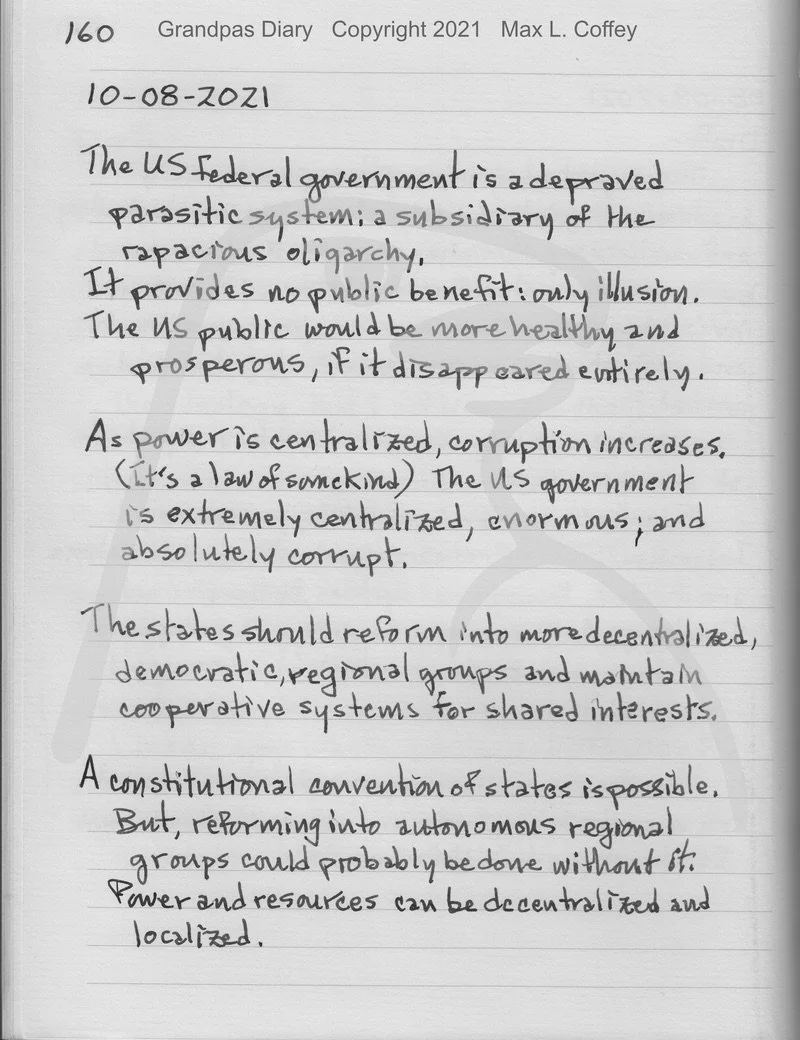 160 Grandpas Diary Copyright 2021 Max L. Coffey
10-08-2021
The US federal government is a depraved
parasitic system: a subsidiary of the
rapacious oligarchy.
It provides no public benefit: only illusion.
The US public would be more healthy and
prosperous, if it disappeared entirely.
As power is centralized, corruption increases.
(It's a law of some kind) The US government
is extremely centralized, enormous; and
absolutely corrupt.
The states should reform into more decentralized,
democratic, regional groups and maintain
cooperative systems for shared interests.
A constitutional convention of states is possible.
But, reforming into autonomous regional
groups could probably be done without it.
Power and resources can be decentralized and
localized.